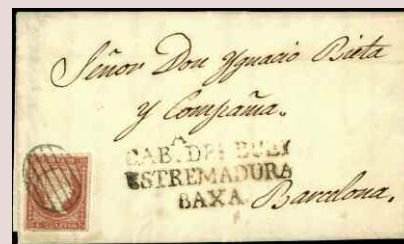 Señor Don Ygnacio Bieta
y Compañia.
A
CAB. DEL BUEY
ESTREMADURA
BAXA.
Barcelona.